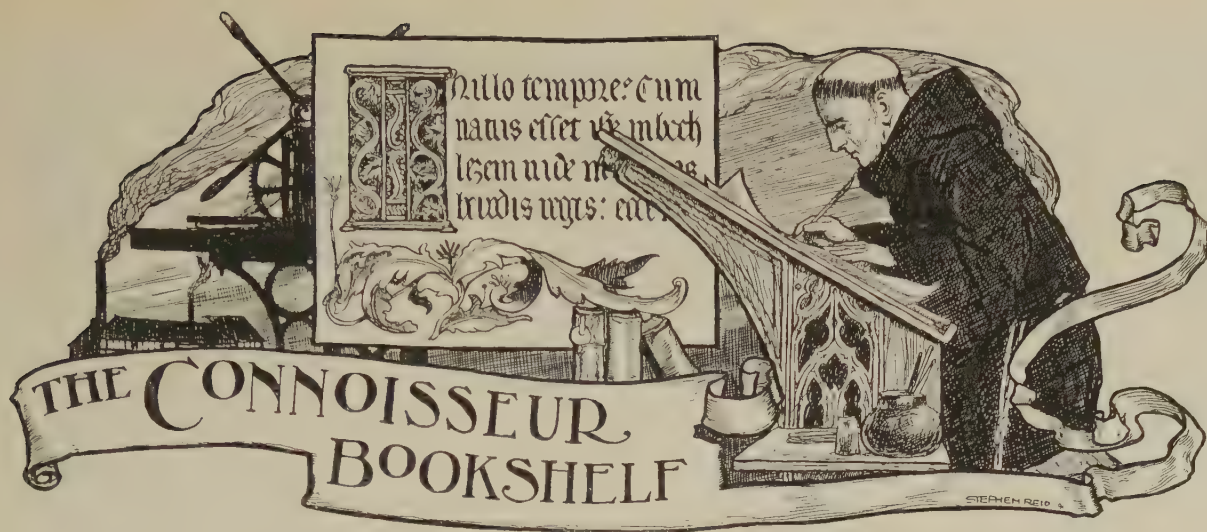 INillo tempore: Cum
natus esset inbeth
leem iude
regis:
THE CONNOISSEUR
BOOKSHELF
STEPHEN REID